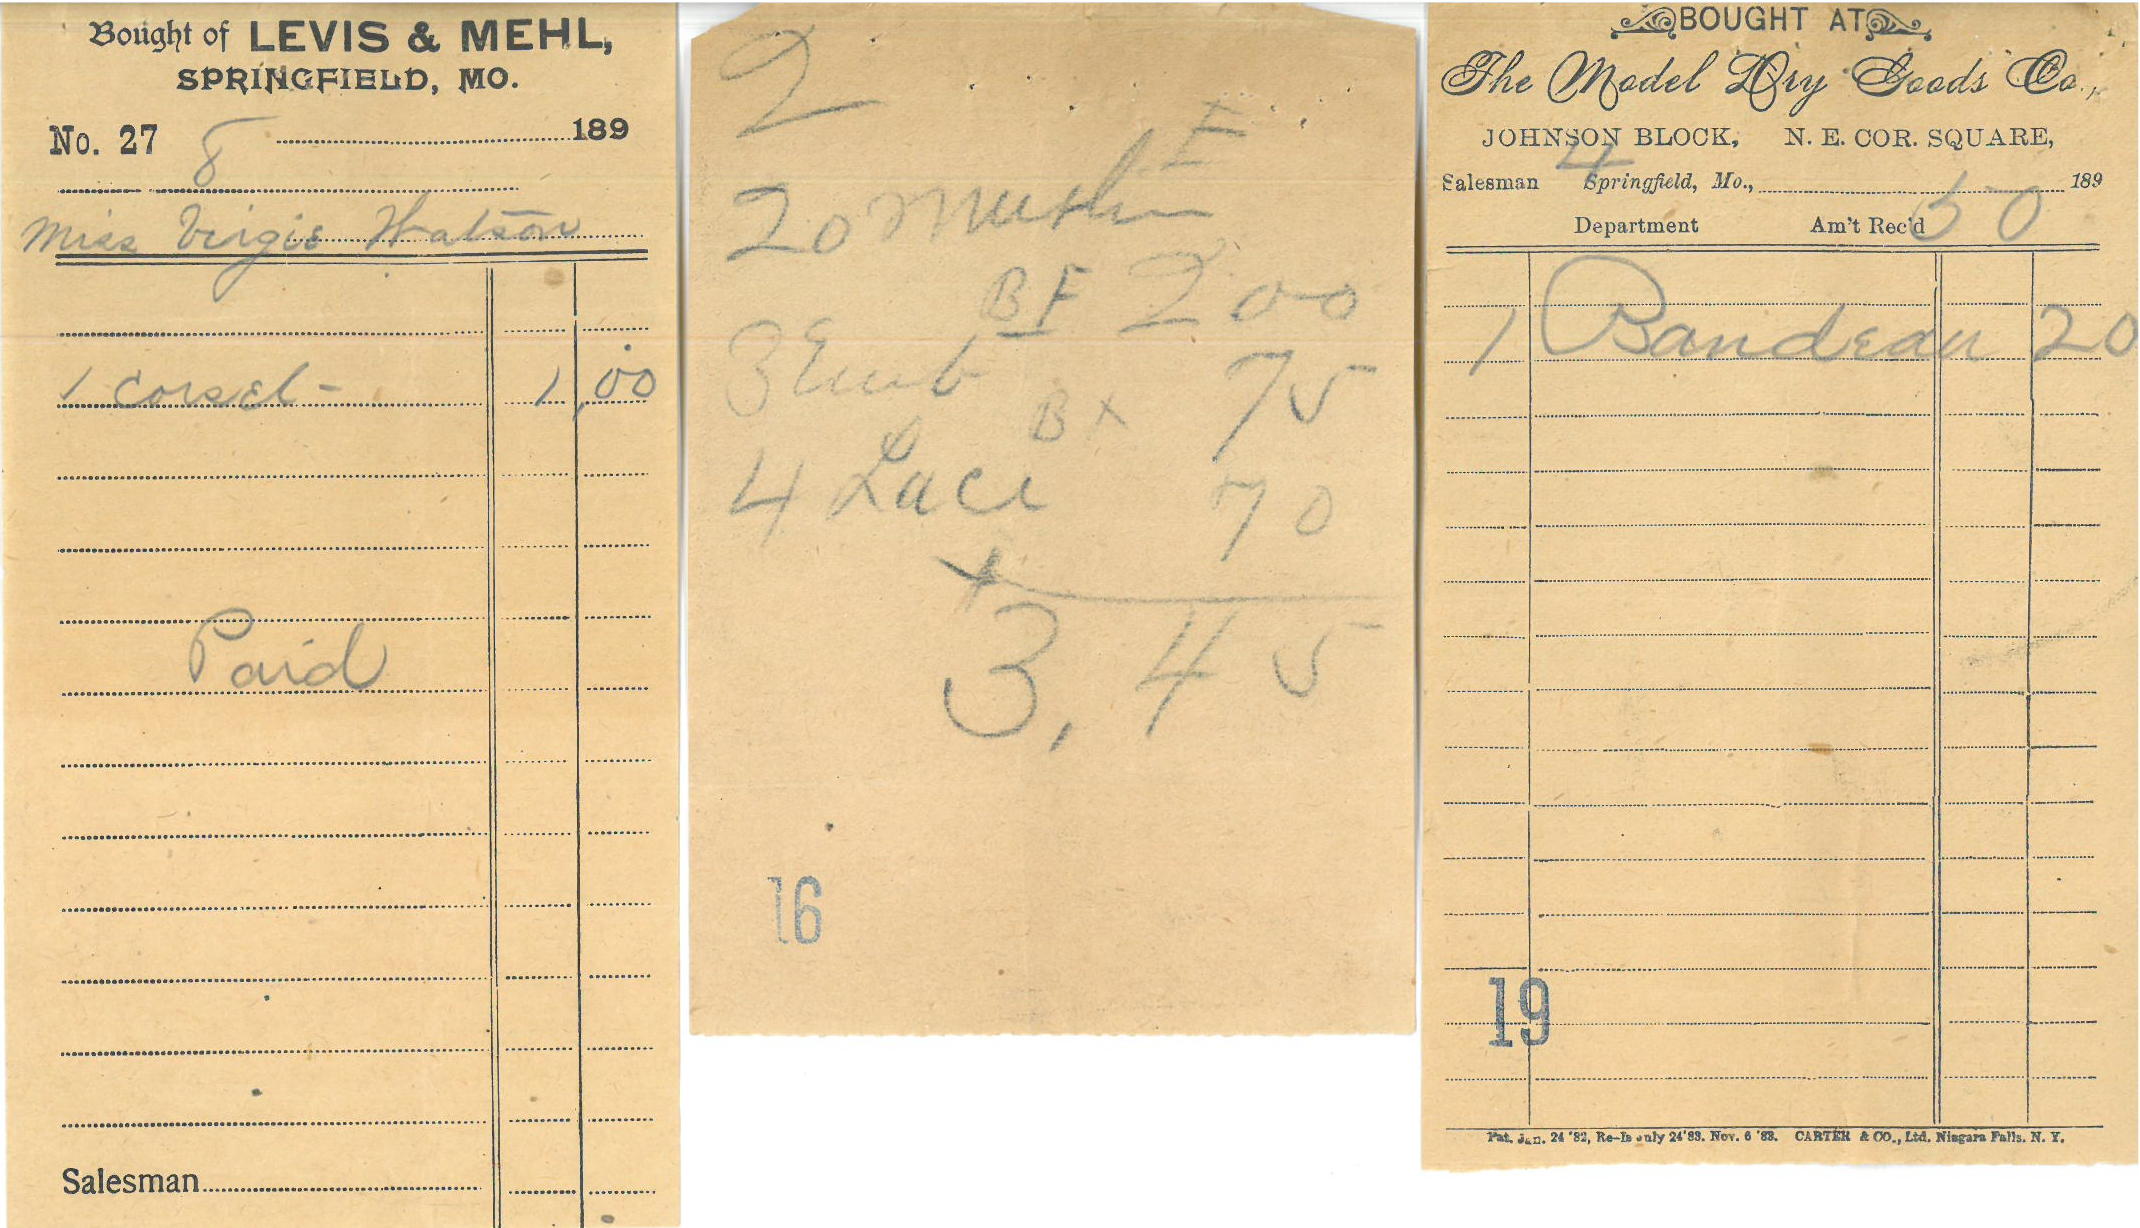 Bought of LEVIS & MEHL,
SPRINGFIELD, MO.
No. 27 189
8
Miss Virgie Watson
1 Corset - 1,00
Paid
Salesman
2
E
20 Muslin
BF 200
3 Emb 75
BX
4 Lace 70
3,45
16
BOUGHT AT
The Model Dry Goods Co.,
JOHNSON BLOCK, N. E. COR. SQUARE,
4
Salesman Springfield, Mo., 189
Department Am't Rec'd 50
1 Bandeau 20
19
Pat. Jan. 24 '82, Re-Is July 24 '83. Nov. 6 '83. CARTER & CO., Ltd. Niagara Falls. N. Y.